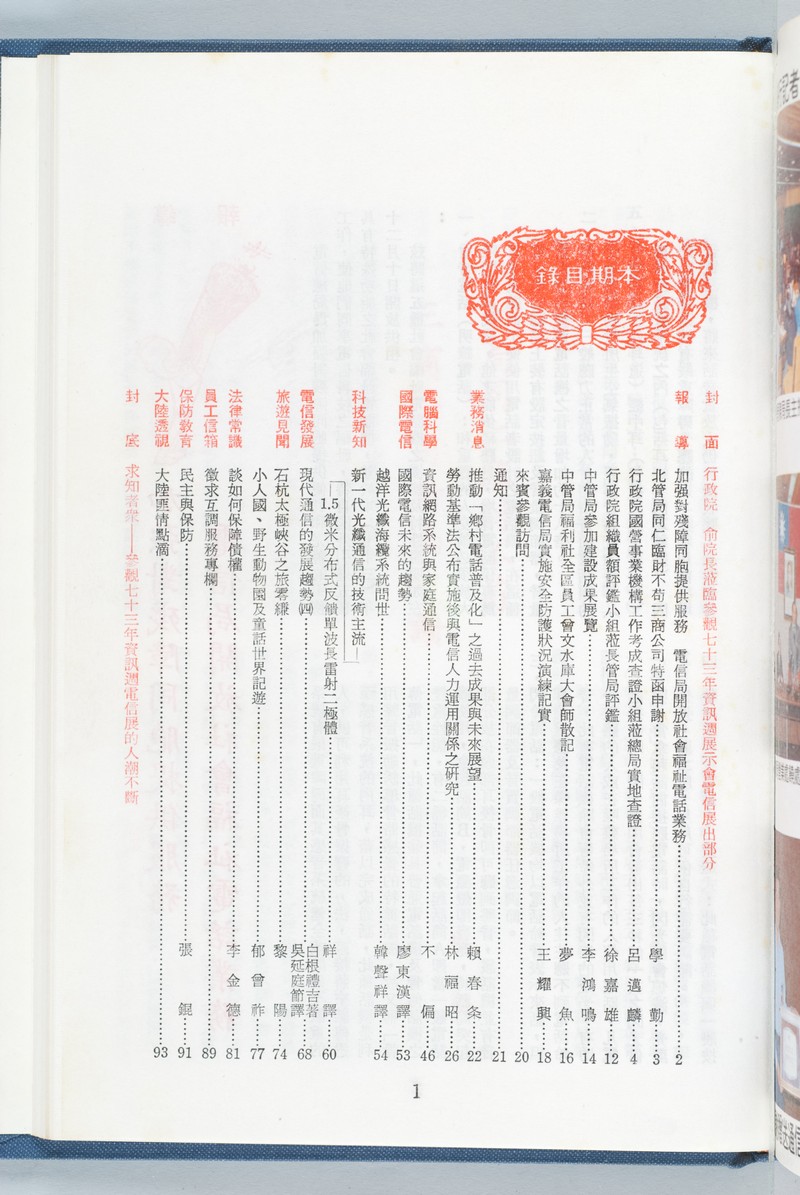 本期目錄
封面 行政院 俞院長蒞臨參觀七十三年資訊週展示會電信展出部分
報導 加强對殘障同胞提供服務 電信局開放社會福祉電話業務 2
北管局同仁臨財不苟三商公司特函申謝 學勤 3
行政院國營事業機構工作考成查證小組蒞總局實地查證 呂邁麟 4
行政院組織員額評鑑小組蒞長管局評鑑 徐嘉雄 12
中管局參加建設成果展覽 李鴻鳴 14
中管局福利社全區員工曾文水庫大會師散記 夢魚 16
嘉義電信局實施安全防護狀況演練記實 王耀興 18
來賓參觀訪問 20
通知 21
業務消息 推動「鄉村電話普及化」之過去成果與未來展望 賴春夈 22
勞動基準法公布實施後與電信人力運用關係之研究 林福昭 26
電腦科學 資訊網路系統與家庭通信 不偏 46
國際電信 國際電信未來的趨勢 廖東漢譯 53
越洋光纖海纜系統問世 韓聲祥譯 54
科技新知 新一代光纖通信的技術主流
1.5微米分布式反饋單波長雷射二極體 祥譯 60
電信發展 現代通信的發展趨勢㈣ 白根禮吉著 吳延庭節譯 68
旅遊見聞 石杭太極峽谷之旅零縑 黎陽 74
小人國、野生動物園及童話世界記遊 郁曾祚 77
法律常識 談如何保障債權 李金德 81
員工信箱 徵求互調服務專欄 89
保防教育 民主與保防 張錕 91
大陸透視 大陸匪情點滴 93
封底 求知者衆——參觀七十三年資訊週電信展的人潮不斷
1